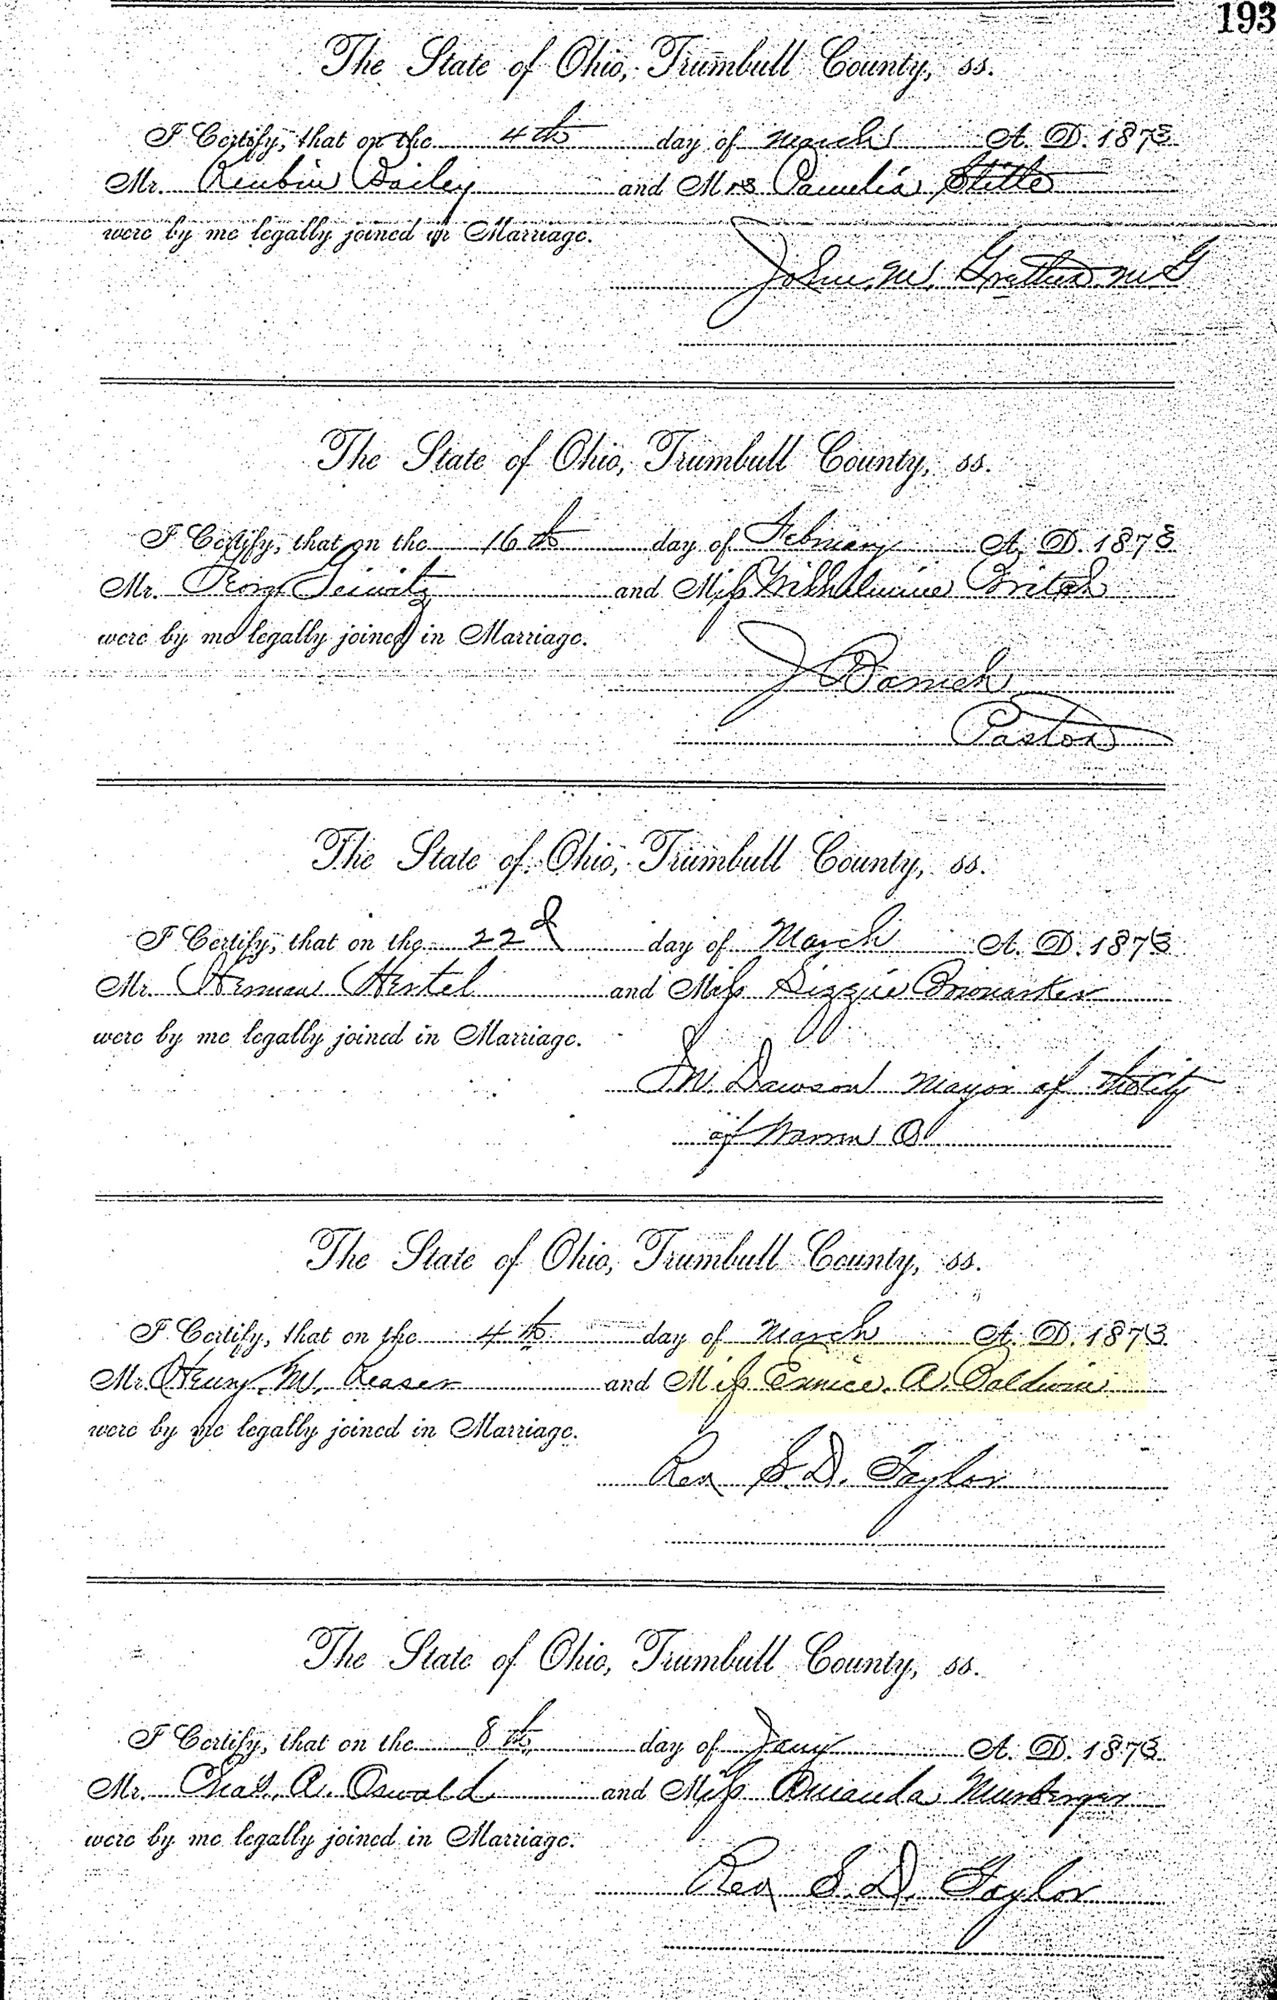 193
The State of Ohio, Trumbull County, ss.
I Certify, that on the 4th day of March A. D. 1873
Mr. Reubin Bailey and Mrs Pamelia
were by me legally joined in Marriage.
John M. M G
The State of Ohio, Trumbull County, ss.
I Certify, that on the 16th day of February A. D. 1873
Mr. and Miss Wilhelmine
were by me legally joined in Marriage.
J
Pastor
The State of Ohio, Trumbull County, ss.
I Certify, that on the 22d day of March A. D. 1873
Mr. Herman Hertel and Miss Lizzie
were by me legally joined in Marriage.
Dawson Mayor of the City
of Warren O
The State of Ohio, Trumbull County, ss.
I Certify, that on the 4th day of March A. D. 1873
Mr. Henry M. Reaser and Miss Eunice A. Baldwin
were by me legally joined in Marriage.
Rev S. D. Taylor
The State of Ohio, Trumbull County, ss.
I Certify, that on the 8th day of Jany A. D. 1873
Mr. Chas. A. Oswald and Miss Amanda
were by me legally joined in Marriage.
Rev S. D. Taylor